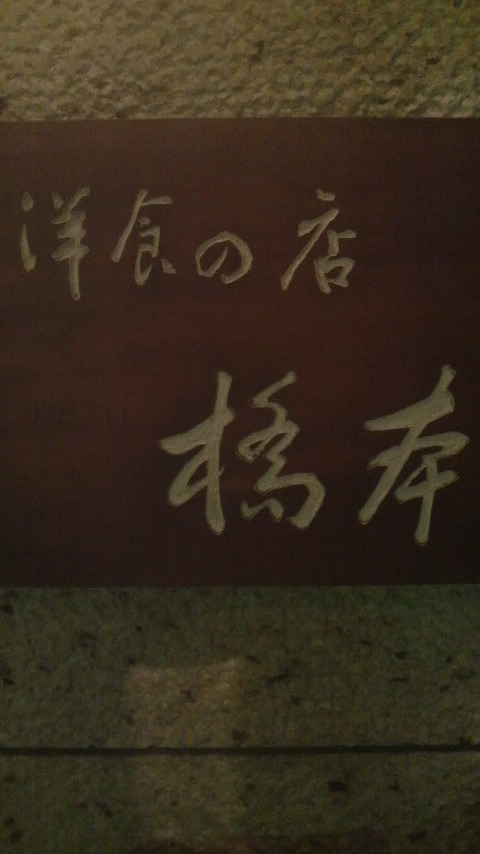 洋食の店
橋本